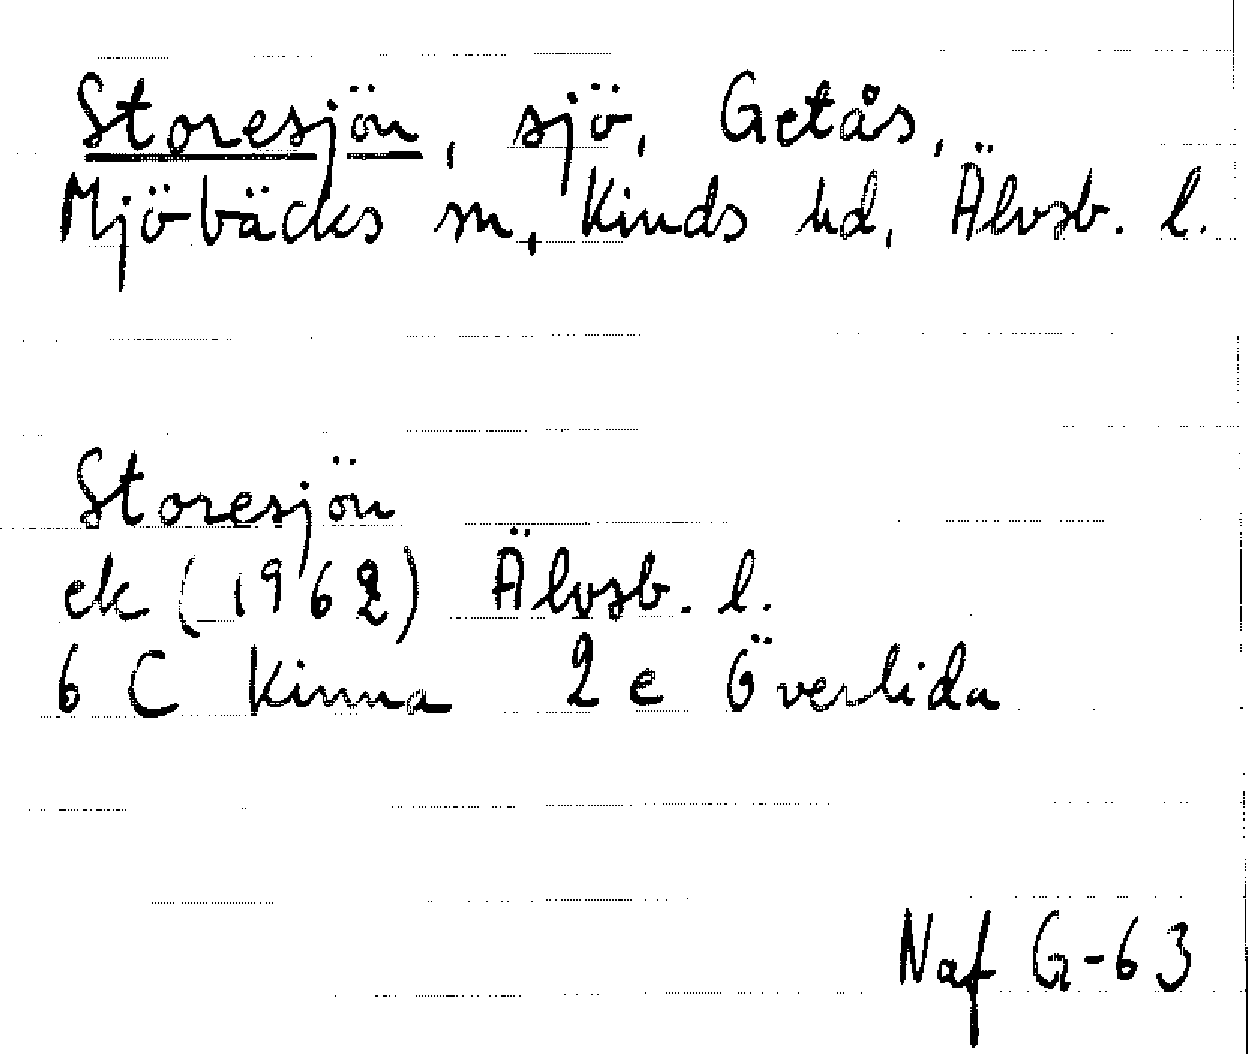 Storesjön, sjö, Getås,
Mjöbäcks sn, Kinds hd, Älvsb. l.
Storesjön
ek (1962) Älvsb. l.
6 C Kinna 2 e Överlida
Naf G-63